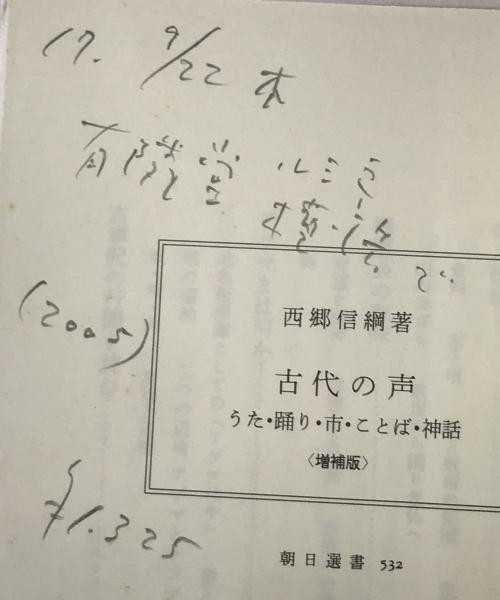 17. 9/22 木
有隣堂 ルミネ
横浜 で
(2005)
西郷信綱著
古代の声
うた・踊り・市・ことば・神話
〈増補版〉
¥1.325
朝日選書 532